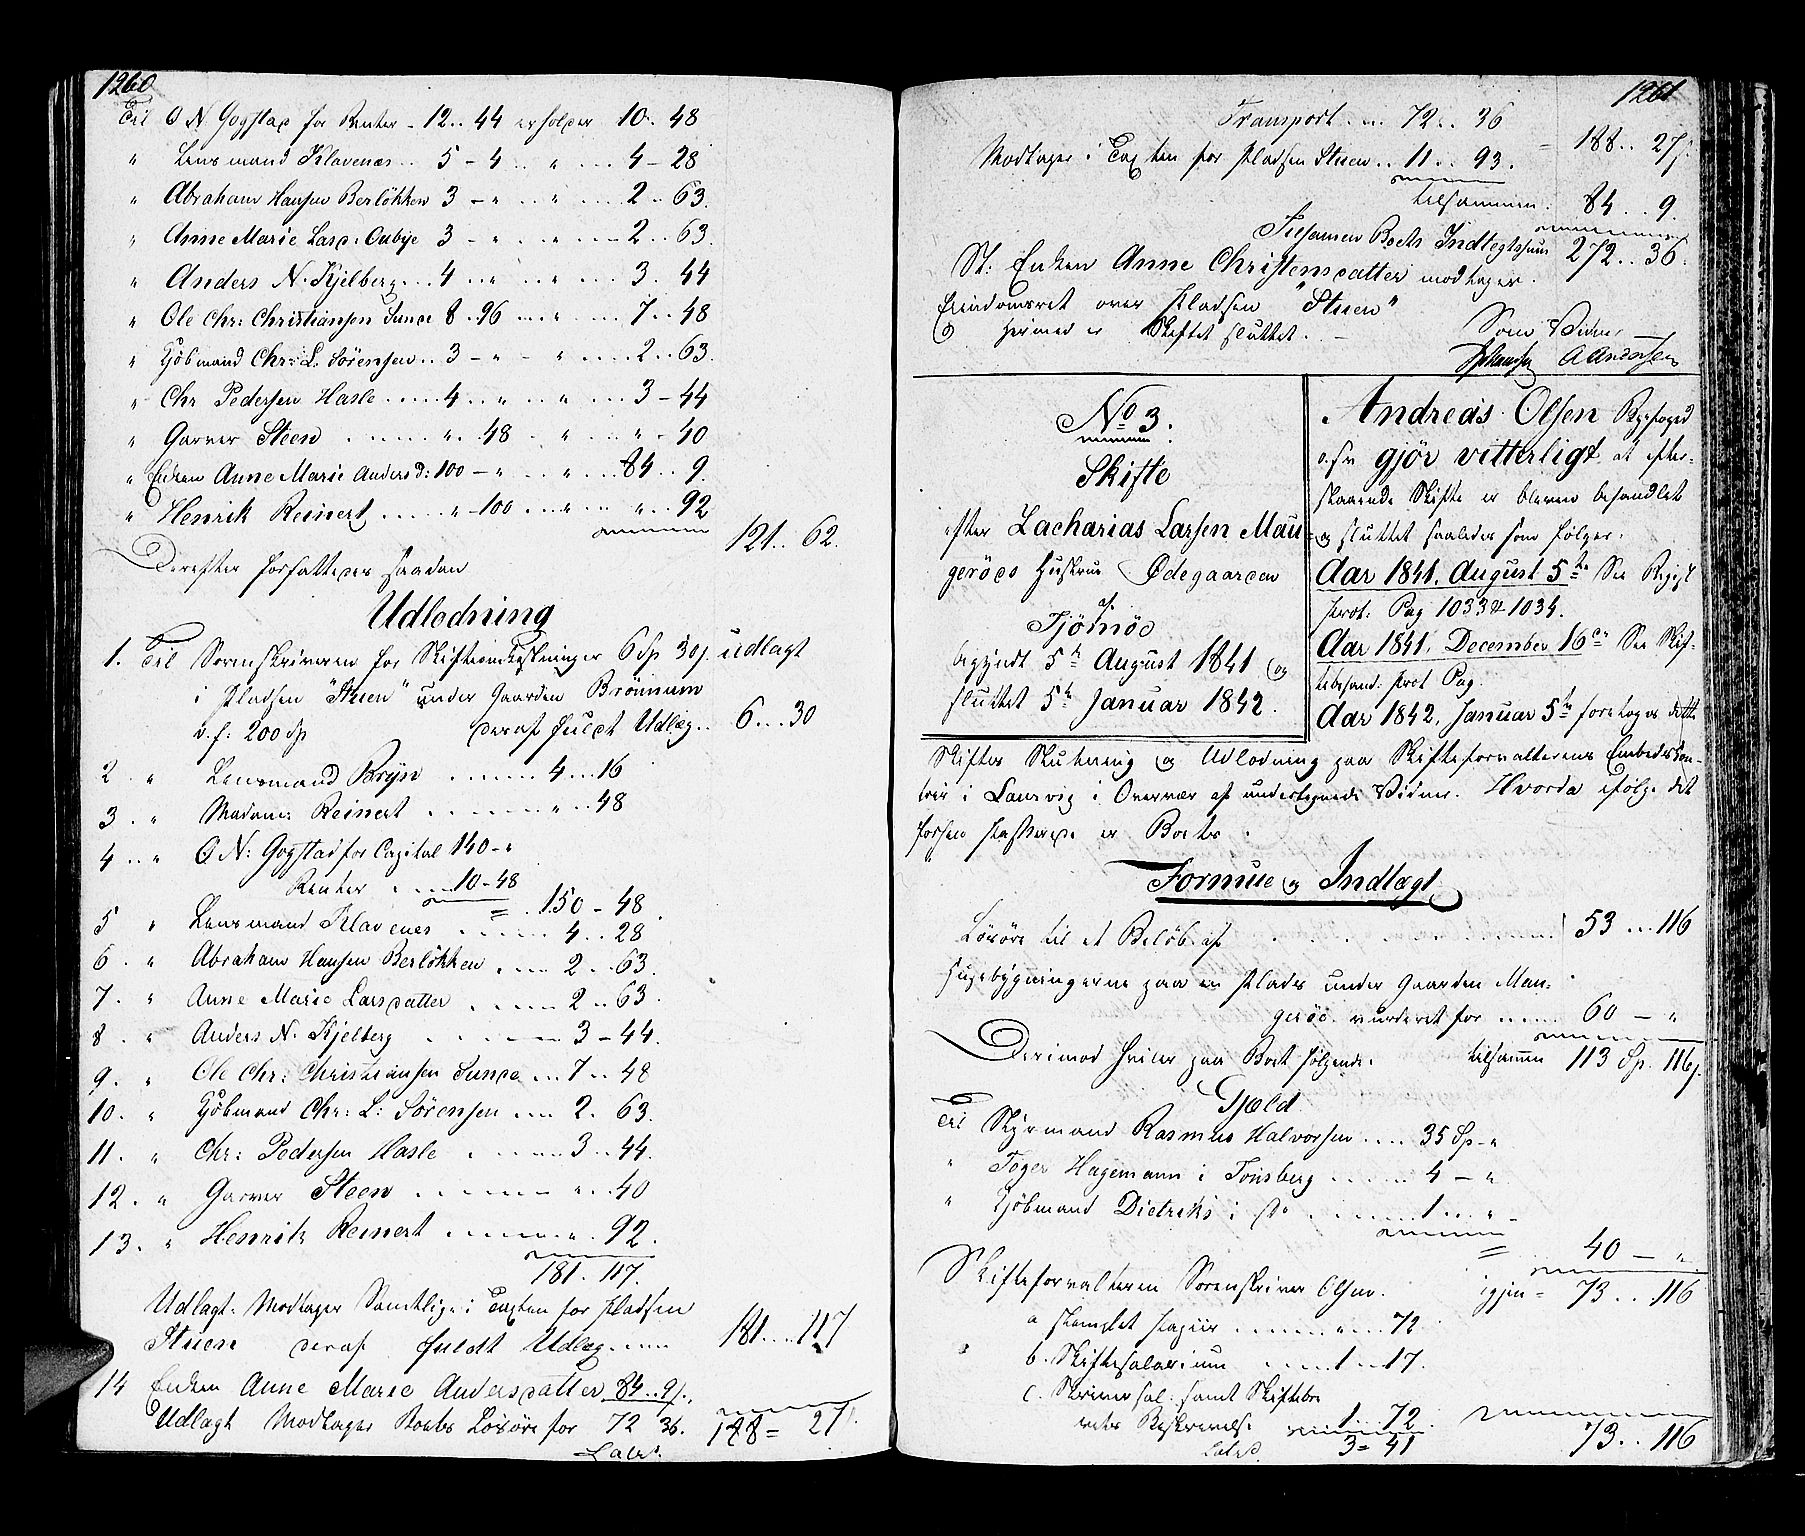 1260
Til O N Gogstad for Renter - 12 .. 44 erholder 10 .. 48
" Lensmand Klavenes .. 5 - 4 .. " ... 4 - 28
" Abraham Hansen Berløkken 3 - " .. " ... 2 .. 63.
" Anne Marie Larsd: Oubye 3 - " .. " ... 2 .. 63.
" Anders N. Kjelberg ... 4 .. " .. " ... 3 . 44
" Ole Chr: Christiansen Sunde 8 . 96 ... " ... 7 .. 48
" Kjöbmand Chr: L. Sörensen .. 3 - " - " ... 2 .. 63.
" Chr Pedersen Hasle ..... 4 .. " .. " ... 3 - 44
" Garver Steen ...... " . 48 . " ... " - 40
" Enken Anne Marie Anders d: 100 - " .. " ... 84 .. 9.
" Henrik Reinert ..... " - 100 ... " .. " .. 92
121 .. 62.
Derefter forfattedes saadan
Udlodning
1. Til Sorenskriveren for Skifteomkostninger 6 Sp 30 s. udlagt
i Pladsen "Stuen" under Gaarden Brönnum
v. f: 200 Sp deraf fuldt Udlæg .. 6 ... 30
2 " Lensmand Bryn ...... 4 ... 16
3 . " Madame Reinert ....... " .. 48
4 .. " O N: Gogstad for Capital 140 - "
Renter .... 10 - 48
= . 150 - 48.
5 " Lensmand Klavenes ...... 4 .. 28
6 . " Abraham Hansen Berløkken .... 2 .. 63.
7 . " Anne Marie Larsdatter ..... 2 .. 63.
8 . " Anders N. Kjelberg ....... 3 - 44.
9 . " Ole Chr: Christiansen Sunde ... 7 .. 48
10 . " Kjöbmand Chr: L: Sörensen .... 2 . 63.
11 . " Chr: Pedersen Hasle ...... 3 .. 44.
12 . " Garver Steen ........ " .. 40
13 . " Henrik Reinert ........ " . 92.
181 . 117.
Udlagt: Modtager Samtlige i Taxten for Pladsen
Stuen deraf fuldt Udlæg ..... 181 ... 117
14 Enken Anne Marie Andersdatter 84 .. 9 s.
Udlagt Modtager Boets Lösöre for 72 36. 188 = 27
Lateris
1261
Transport .... 72 .. 36
188 .. 27 s.
Modtager i Taxten for Pladsen Stuen .. 11 .. 93.
tilsammen . 84 .. 9.
Tilsamen Boets Indtægtssum 272 .. 36.
St: Enken Anne Christensdatter modtager
Eiendomsret over Pladsen "Stuen"
Og hermed er Skiftet sluttet. -
Som Vidner
Johansen A Andersen
No 3.
Skifte
efter Zacharias Larsen Mau-
geröes Hustrue Ödegaarden
af
Tjömöe
begyndt 5te August 1841 og
sluttet 5te Januar 1842.
Andreas Olsen Byefoged
o. s v gjör vitterligt at efter-
staaende Skifte er bleven behandlet
og sluttet saaledes som følger:
Aar 1841. August 5te See Regist
prot: Pag 1033 & 1034.
Aar 1841. December 16de See Skif-
tebehand: prot Pag.
Aar 1842, Januar 5te foretoges dette
Skiftes Slutning og Udlodning paa Skifteforvalterens Embedskon-
toir i Laurvig i Overvær af undertegnede Vidner. Hvorda ifølge det
forhen passerede er Boets:
Formue og Indtægt
Lösöre til et Belöb af ........ 53 ... 116
Huusbygningerne paa en Plads under Gaarden Mau-
geröe vurderet for ..... 60 - "
Derimod hviler paa Boet følgende: tilsamen 113 Sp. 116 s.
Gjæld
Til Styrmand Rasmus Halvorsen .... 35 Sp - "
" Toger Hagemann i Tonsberg ...... 4 - "
" Kjöbmand Dietriks i do ........ 1 ... " -
= ... 40 - ".
Skifteforvalteren Sorenskriver Olsen. igjen = 73 .. 116
a Stemplet Papiir ....... " ... 72
b. Skiftesalarium ..... 1 .. 17.
c. Skriversal: samt Skiftebre
vets Beskrivelse ..... 1 .. 72.
Laterd. 3 = 41 73 .. 116